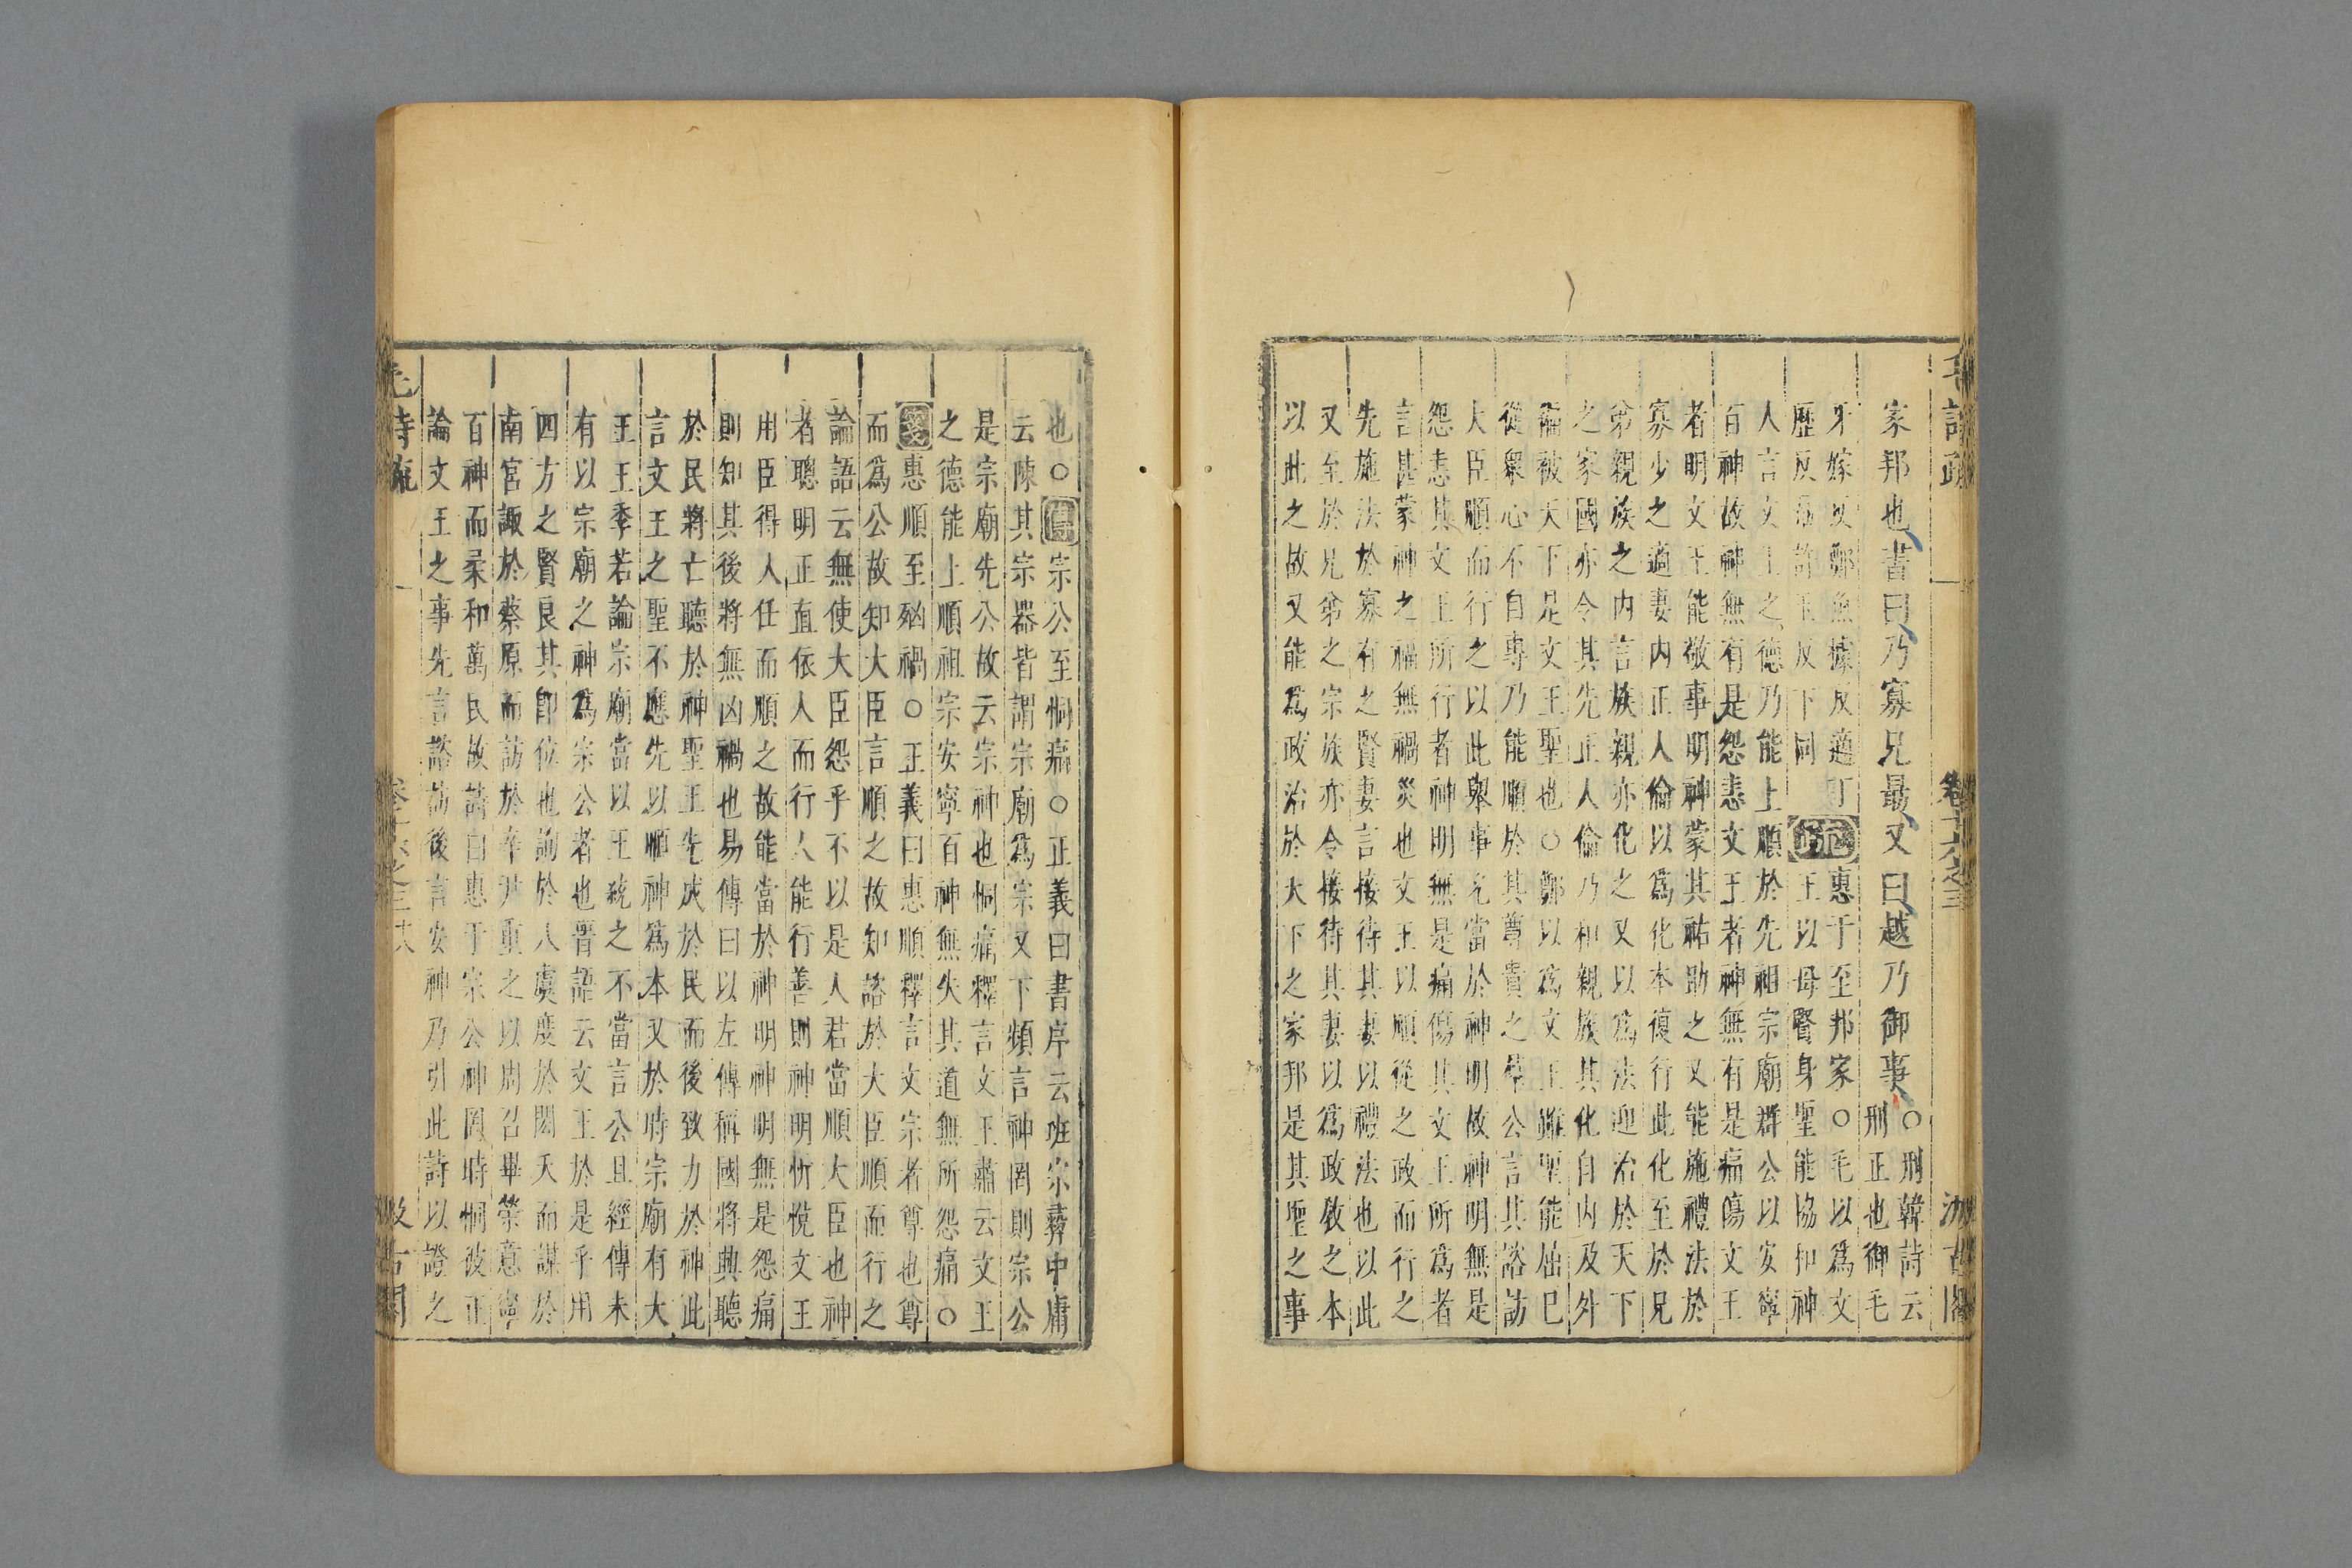 毛詩疏 卷十六之三 汲古閣
家邦也書曰乃寡兄最又曰越乃御事○刑韓詩云
刑正也御毛
牙嫁反鄭魚據反適丁
歷反 下同
疏惠于至邦家○毛以爲文
王以母賢身聖能協和神
人言文王之德乃能上順於先祖宗廟群公以安寧
百神故神無有是怨恚文王者神無有是痛傷文王
者明文王能敬事明神蒙其祐助之又能施禮法於
寡少之適妻内正人倫以爲化本復行此化至於兄
弟親族之内言族親亦化之又以爲法迎治於天下
之家國亦令其先正人倫乃和親族其化自内及外
徧被天下是文王聖也○鄭以爲文王雖聖能屈巳
從衆心不自專乃能順於其尊貴之羣公言其諮訪
大臣順而行之以此舉事允當於神明故神明無是
怨恚其文王所行者神明無是痛傷其文王所爲者
言甚蒙神之福無禍災也文王以順從之政而行之
先施法於寡有之賢妻言接待其妻以禮法也以此
又至於兄弟之宗族亦令接待其妻以爲政教之本
以此之故又能爲政治於大下之家邦是其聖之事
也○傳宗公至恫痛○正義曰書序云班宗彝中庸
云陳其宗器皆謂宗廟爲宗又下頻言神罔則宗公
是宗廟先公故云宗神也恫痛釋言文王肅云文王
之德能上順祖宗安寧百神無失其道無所怨痛○
箋惠順至殃禍○正義曰惠順釋言文宗者尊也尊
而爲公故知大臣言順之故知諮於大臣順而行之
論語云無使大臣怨乎不以是人君當順大臣也神
者聰明正直依人而行人能行善則神明忻悅文王
用臣得人任而順之故能當於神明神明無是怨痛
則知其後將無凶禍也易傳曰以左傳稱國將興聽
於民將亡聽於神聖王先成於民而後致力於神此
言文王之聖不應先以順神爲本又於時宗廟有大
王王季若論宗廟當以王統之不當言公且經傳未
有以宗廟之神爲宗公者也晉語云文王於是乎用
四方之賢良其卽位也詢於八虞度於閎夭而謀於
南宮諏於蔡原而訪於辛尹重之以周召畢榮意寧
百神而柔和萬民故詩曰惠于宗公神罔時恫彼正
論文王之事先言諮訪後言安神乃引此詩以證之
毛詩疏 卷十六之三 十八 汲古閣